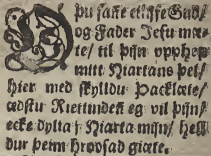 Þu sake ellske Guds/
og Fader Jesu mæ-
te/ til þijn vpphep
mitt Hiartans þel/
hier med skylldu Packlæte/
ædstu Riettinden eg vil þijn/
ecke dylia/ Hiarta mijn/ hell
dur þeim hroosad giæte.